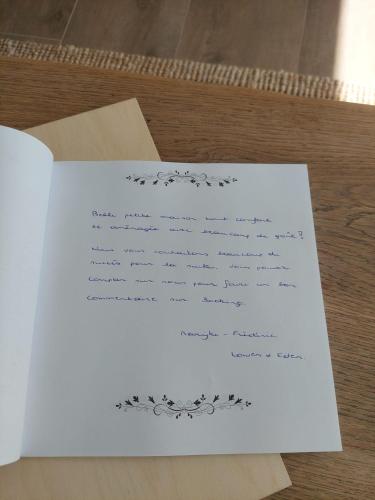 Belle petite maison tout confort
et aménagée avec beaucoup de goût!
Nous vous souhaitons beaucoup de
succès pour la suite. Vous pouvez
compter sur nous pour faire un bon
commentaire sur Booking.
- Frédéric
Louis & Eden